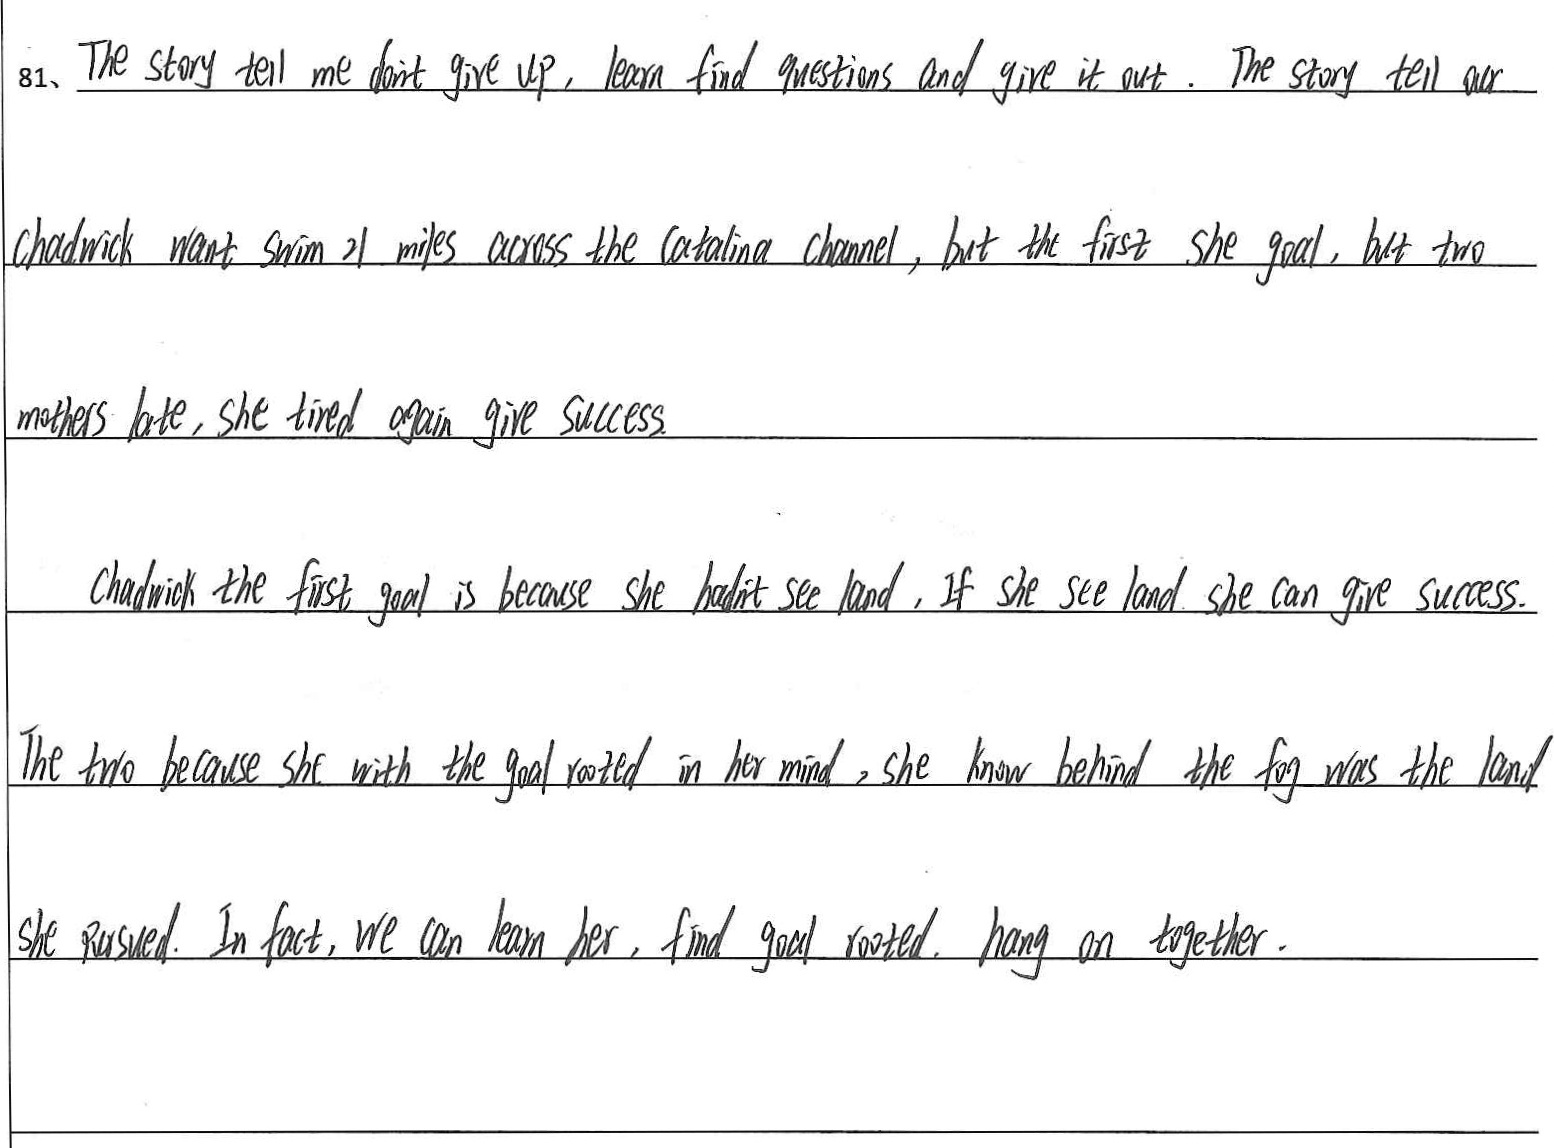 81、 The story tell me don't give up, learn find questions and give it out. The story tell our
Chadwick want swim 21 miles across the Catalina channel, but the first she goal, but two
mothers late, she tired again give success.
Chadwick the first goal is because she hadn't see land, If she see land she can give success.
The two because she with the goal rooted in her mind, she know behind the fog was the land
she pursued. In fact, we can learn her, find goal rooted. hang on together.